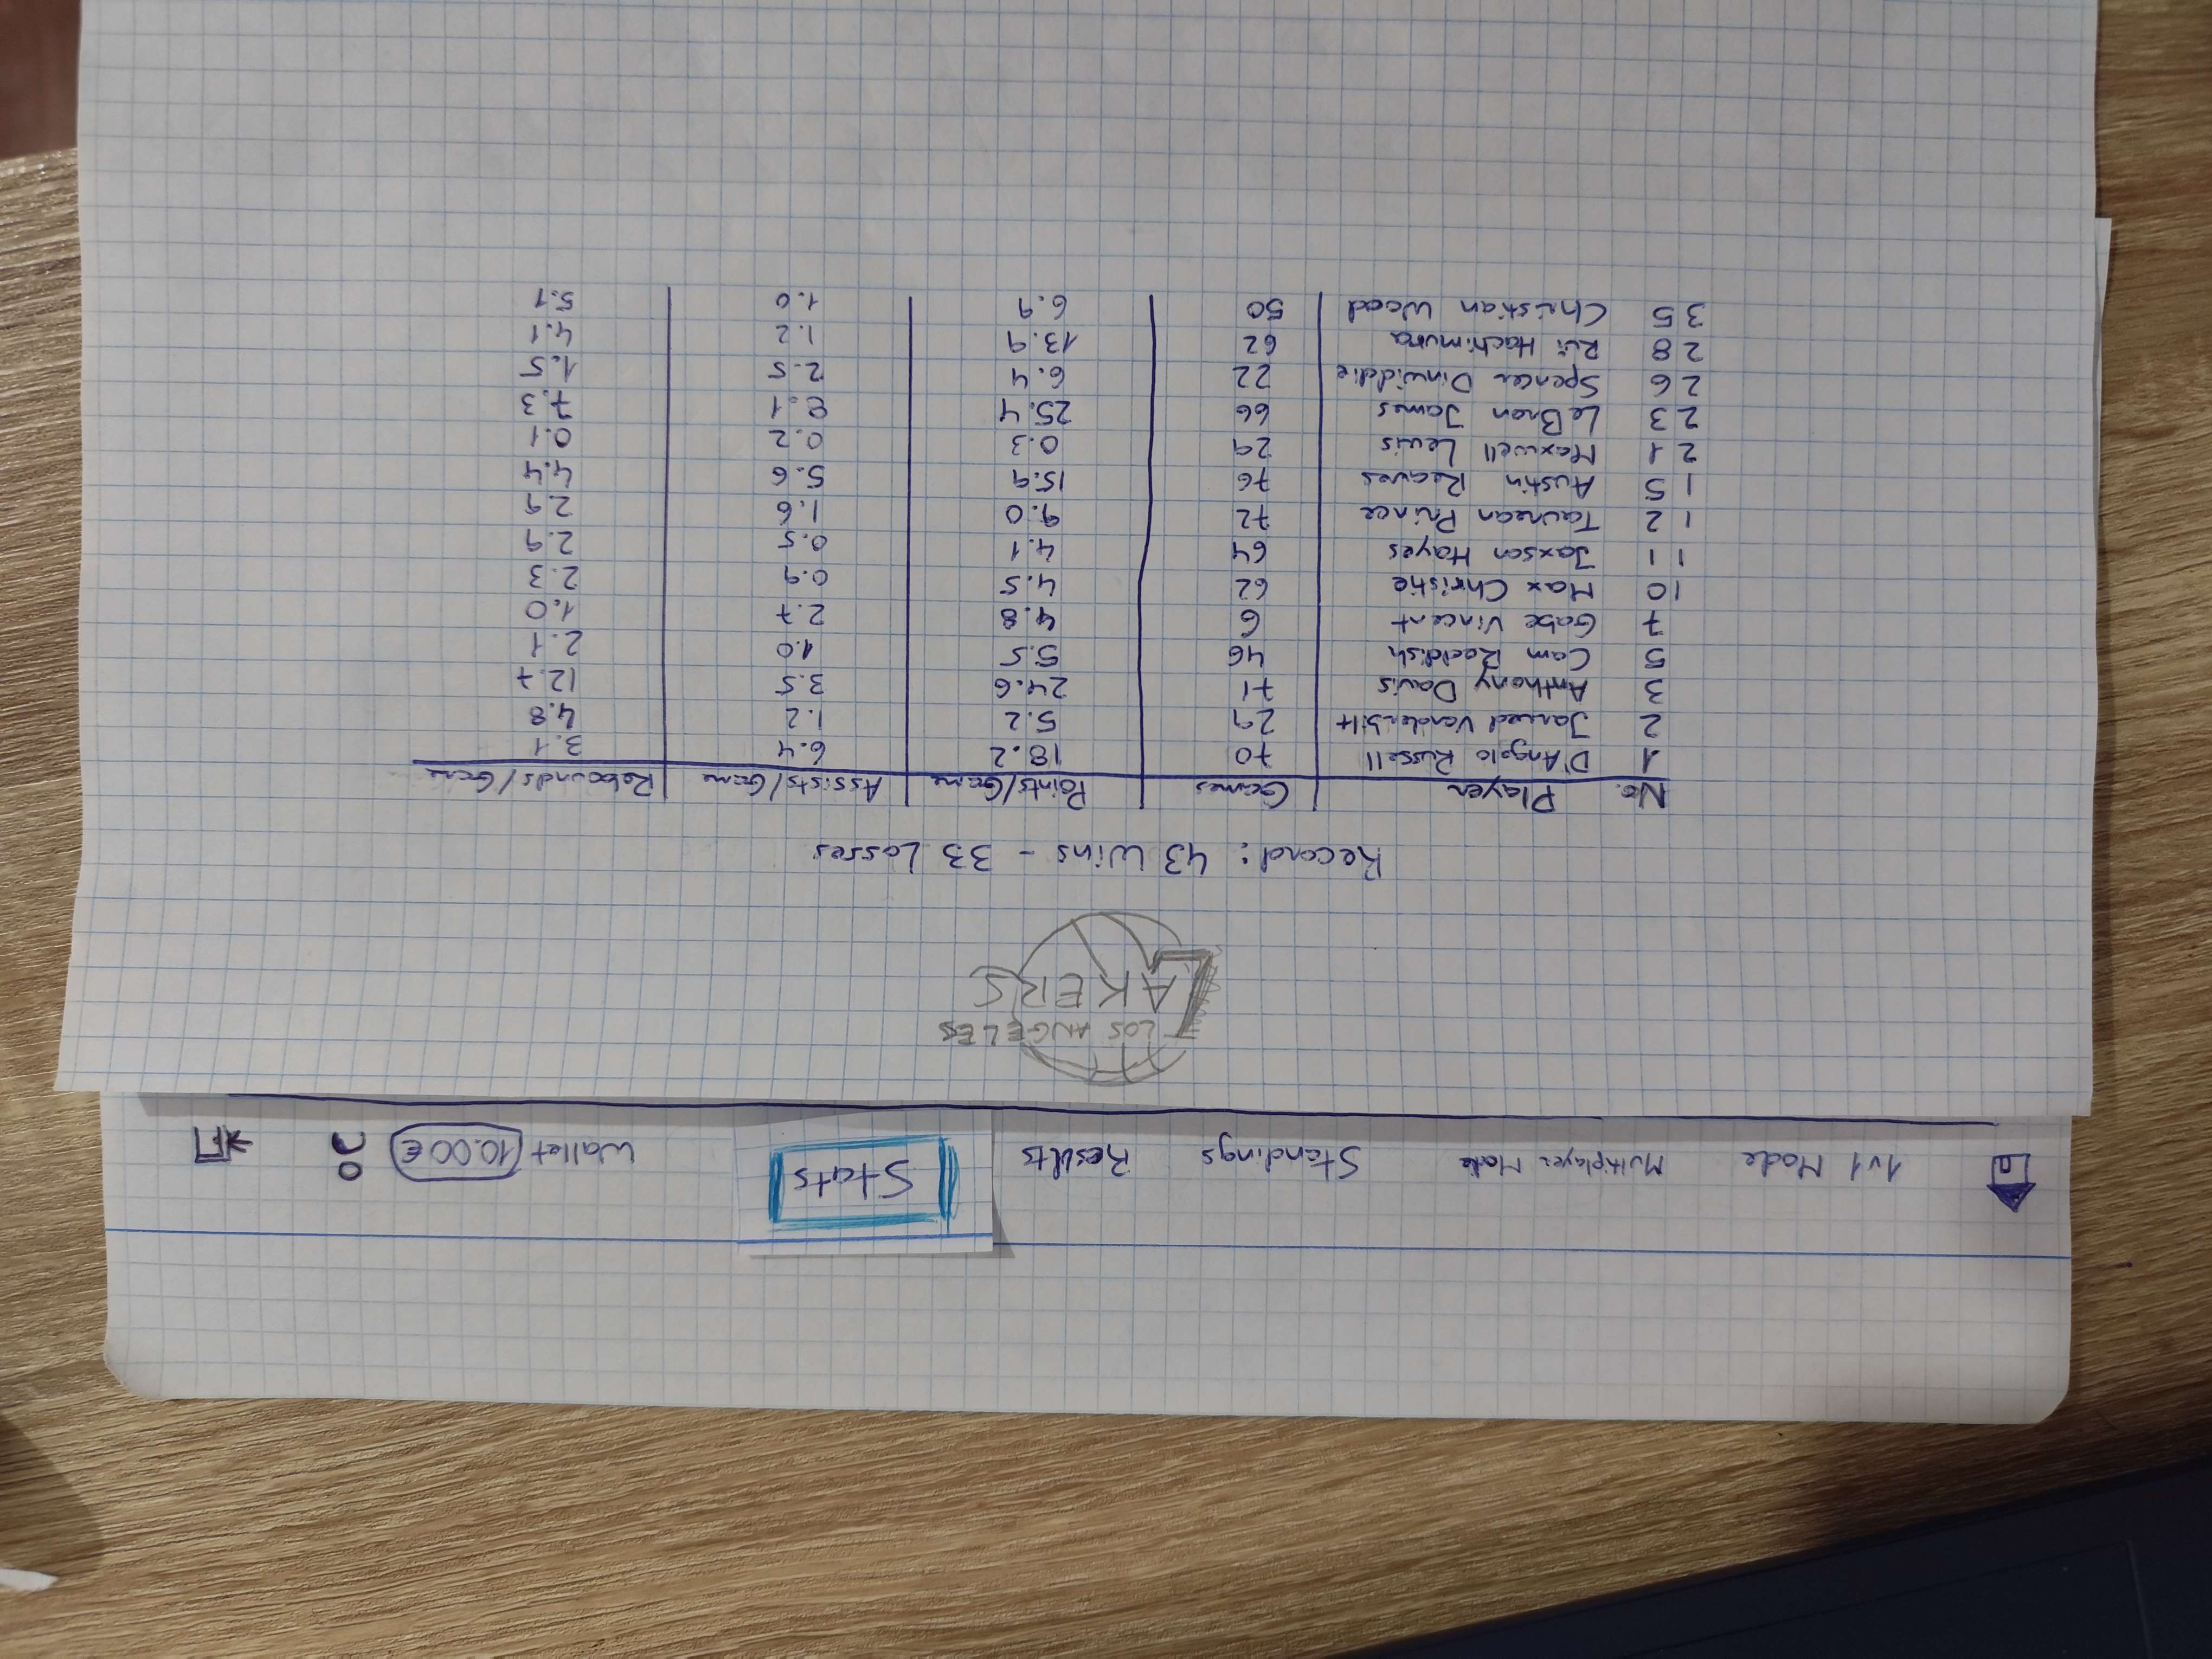 1v1 Mode Multiplayer Mode Standings Results Stats Wallet 10.00€
LOS ANGELES
LAKERS
Record: 43 Wins - 33 Losses
No. Player Games Points/Game Assists/Game Rebounds/Game
1 D'Angelo Russell 70 18.2 6.4 3.1
2 Jarred Vanderbilt 29 5.2 1.2 4.8
3 Anthony Davis 71 24.6 3.5 12.7
5 Cam Reddish 46 5.5 1.0 2.1
7 Gabe Vincent 6 4.8 2.7 1.0
10 Max Christie 62 4.5 0.9 2.3
11 Jaxson Hayes 64 4.1 0.5 2.9
12 Taurean Prince 72 9.0 1.6 2.9
15 Austin Reaves 76 15.9 5.6 4.4
21 Maxwell Lewis 29 0.3 0.2 0.1
23 LeBron James 66 25.4 8.1 7.3
26 Spencer Dinwiddie 22 6.4 2.5 1.5
28 Rui Hachimura 62 13.9 1.2 4.1
35 Christian Wood 50 6.9 1.0 5.1